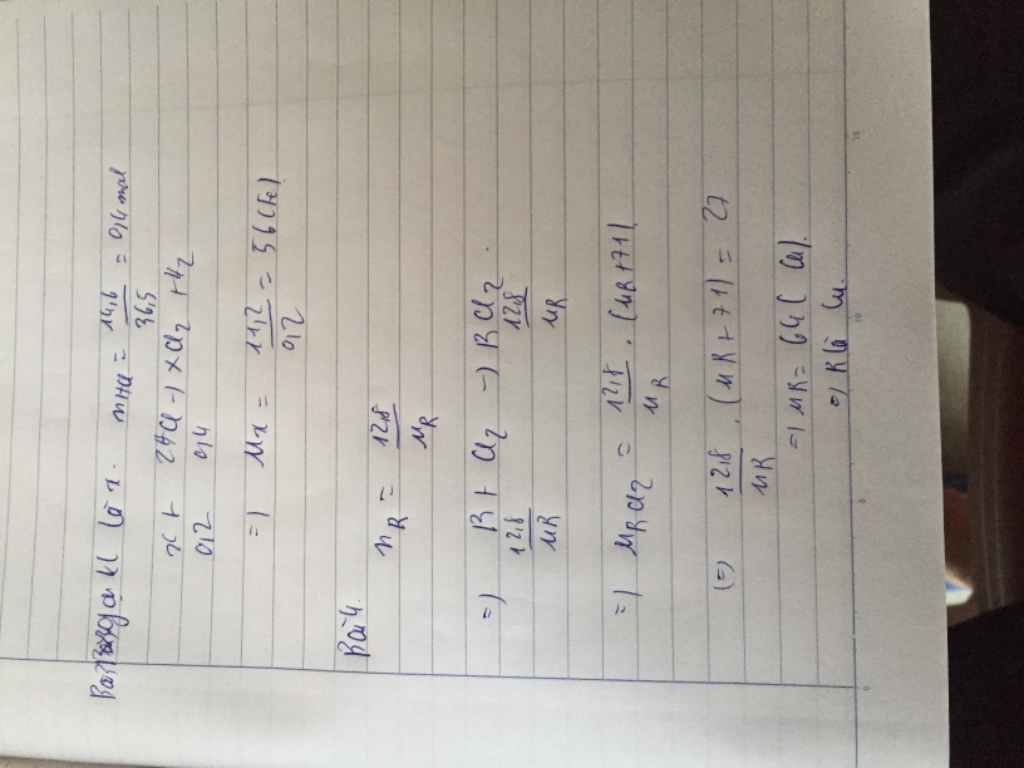 Bài 3: gọi kl là x. nHCl = 14,6/36,5 = 0,4 mol
x + 2HCl -> xCl2 + H2
0,2 0,4
=> Mx = 11,2/0,2 = 56 (Fe)
Bài 4.
nR = 12,8/MR
=> R + Cl2 -> RCl2.
12,8/MR 12,8/MR
=> MRCl2 = 12,8/MR . (MR+71)
(=) 12,8/MR . (MR+71) = 27
=> MR = 64 (Cu).
=> R là Cu.